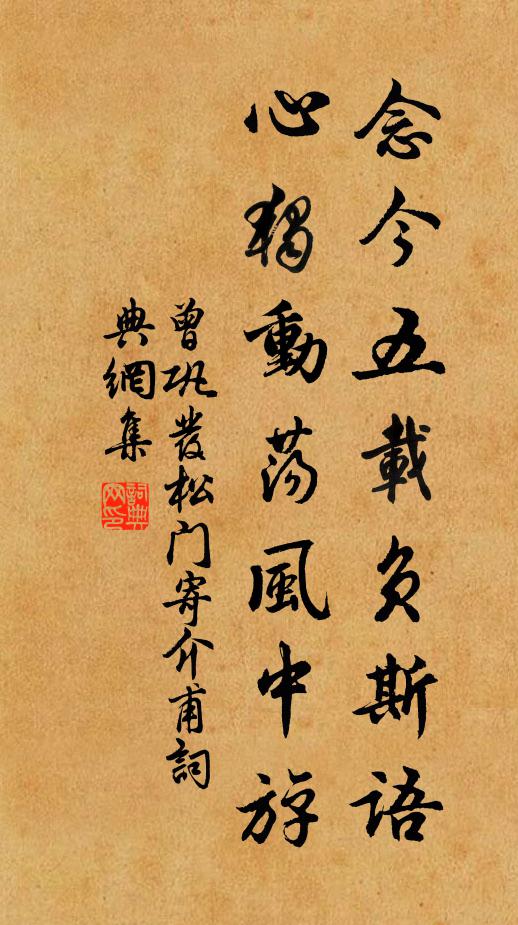 念今五載負斯語
心獨動蕩風中斿
曾巩發松门寄介甫詞
典網集
詞典
网印